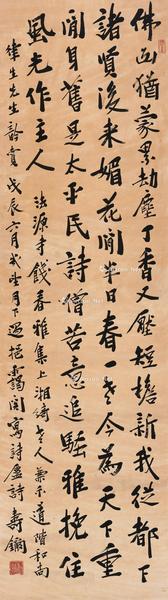 佛面猶蒙累劫塵丁香又壓短檐新我從都下
諸賢後來媚花間半日春一老今為天下重
閒身舊是太平民詩僧苦意追騷雅挽住
風光作主人
法源寺餞春雅集上湘綺老人兼示道階和尚
律生先生賞戊辰六月月下過挹靄寫詩壽鑈